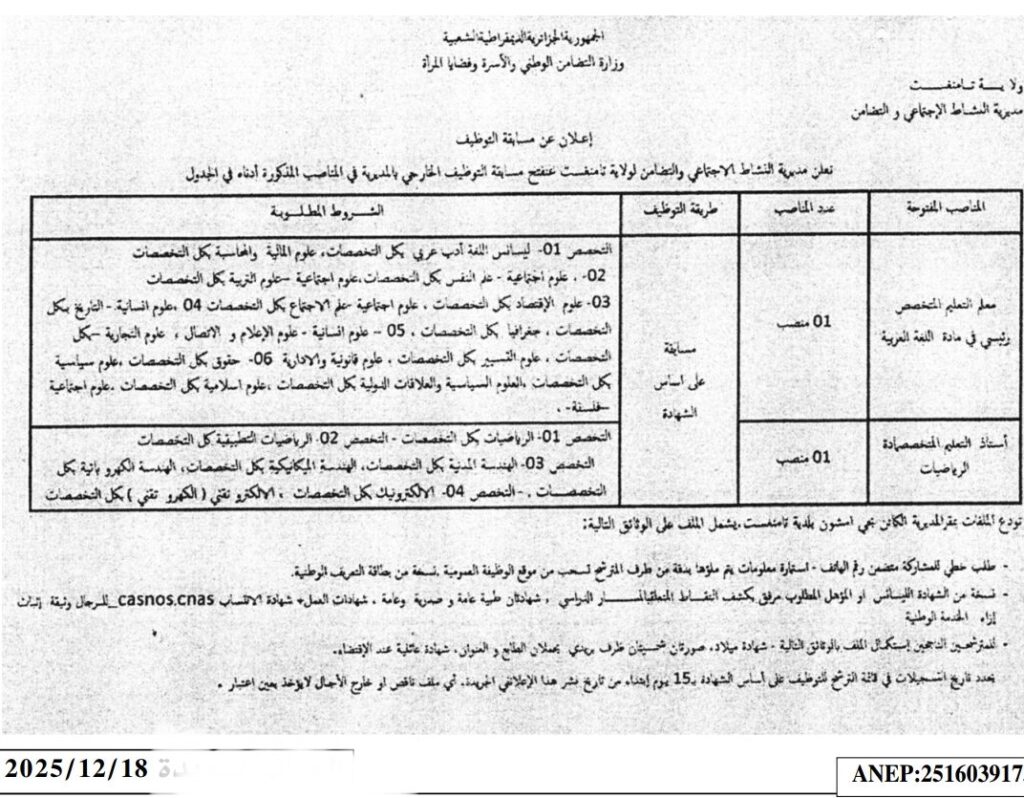 الجمهورية الجزائرية الديمقراطية الشعبية
وزارة التضامن الوطني والأسرة وقضايا المرأة
ولايـــة تـامنغســـت
مديرية النشاط الإجتماعي و التضامن
إعلان عن مسابقة التوظيف
تعلن مديرية النشاط الاجتماعي والتضامن لولاية تامنغست عنفتح مسابقة التوظيف الخارجي بالمديرية في المناصب المذكورة أدناه في الجدول
المناصب المفتوحة
عدد المناصب
طريقة التوظيف
الشـــروط المطلـــوبة
معلم التعليم المتخصص
رئيسي في مادة اللغة العربية
01 منصب
مسابقة
على اساس
الشهادة
التخصص 01- ليسانس اللغة أدب عربي بكل التخصصات، علوم المالية والمحاسبة بكل التخصصات
02- ، علوم اجتماعية - علم النفس بكل التخصصات،علوم اجتماعية –علوم التربية بكل التخصصات
03- علوم الإقتصاد بكل التخصصات ، علوم اجتماعية -علم الاجتماع بكل التخصصات 04 ،علوم انسانية - التاريخ بكل
التخصصات ، جغرافيا بكل التخصصات ، 05 – علوم انسانية - علوم الإعلام و الاتصال ، علوم التجارية –بكل
التخصصات ، علوم التسيير بكل التخصصات ، علوم قانونية والادارية 06- حقوق بكل التخصصات ،علوم سياسية
بكل التخصصات ،العلوم السياسية والعلاقات الدولية بكل التخصصات ،علوم اسلامية بكل التخصصات ،علوم اجتماعية
–فلسفة- .
أستاذ التعليم المتخصصمادة
الرياضيات
01 منصب
التخصص 01- الرياضيات بكل التخصصات - التخصص 02- الرياضيات التطبيقية كل التخصصات
التخصص 03- الهندسة المدنية بكل التخصصات، الهندسة الميكانيكية بكل التخصصات، الهندسة الكهرو بائية بكل
التخصصـــات . - التخصص 04- الالكترونيك بكل التخصصات ، الالكترو تقني ( الكهرو تقني ) بكل التخصصات
تودع الملفات بمقرالمديرية الكائن بحي امشون بلدية تامنغست.يشمل الملف على الوثائق التالية:
- طلب خطي للمشاركة متضمن رقم الهاتف - استمارة معلومات يتم ملؤها بدقة من طرف المترشح تسحب من موقع الوظيفة العمومية .نسخة من بطاقة التعريف الوطنية.
- نسخة من الشهادة الليسانس او المؤهل المطلوب مرفق بكشف النقـاط المتعلقبالمســار الدراسي ، شهادتان طبية عامة و صدرية وعامة . شهادات العمل+ شهادة الانتساب casnos.cnas_للرجال وثيقة إثبات
إزاء الخدمة الوطنية
- للمترشحين الناجحين إستكمال الملف بالوثائق التالية - شهادة ميلاد، صورتان شمسيتان ظرف بريدي يحملان الطابع و العنوان، شهادة عائلية عند الإقتضاء.
يحدد تاريخ التسجيلات في قائمة الترشح للتوظيف على أساس الشهادة بـ15 يوم إبتداء من تاريخ نشر هذا الإعلانفي الجريدة. أي ملف ناقص او خارج الأجال لايؤخذ بعين إعتبار .
2025/12/18
ANEP:251603917